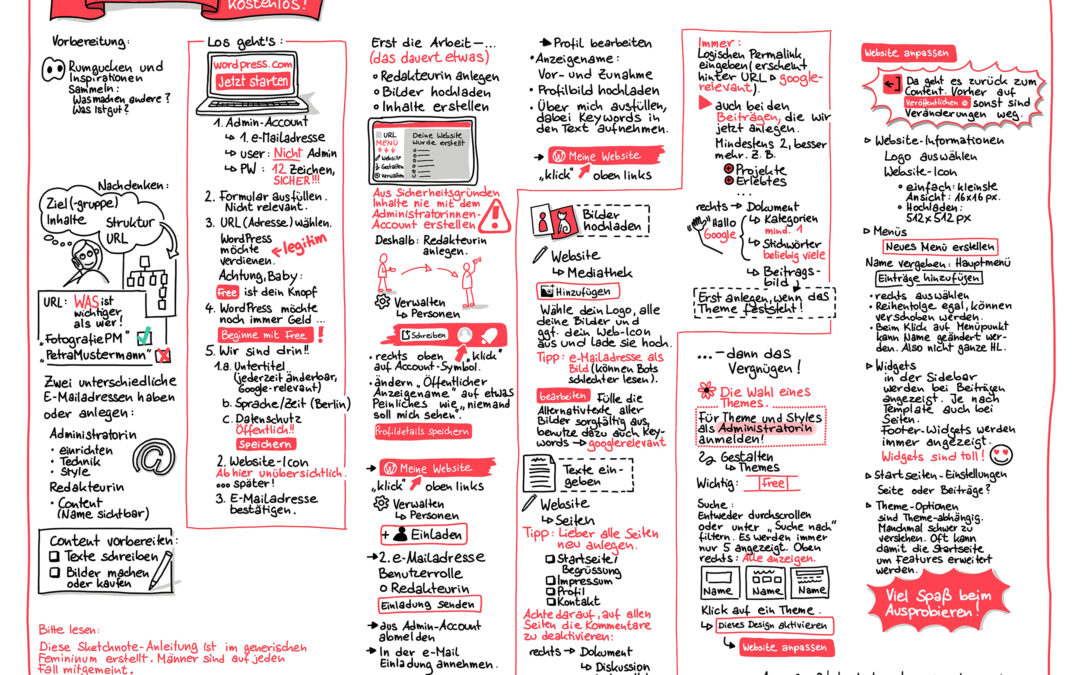 kostenlos!
Vorbereitung:
Rumgucken und
Inspirationen
Sammeln:
Was machen andere?
Was ist gut?
Nachdenken:
Ziel(-gruppe)
Inhalte
Struktur
URL
URL: WAS ist
wichtiger
als wer!
„FotografiePM"
„PetraMustermann"
Zwei unterschiedliche
E-Mailadressen haben
oder anlegen:
Administratorin
• einrichten
• Technik
• Style
Redakteurin
• Content
(Name sichtbar)
Content vorbereiten:
Texte schreiben
Bilder machen
oder kaufen
Bitte lesen:
Diese Sketchnote-Anleitung ist im generischen
Femininum erstellt. Männer sind auf jeden
Fall mitgemeint.
Los geht's:
wordpress.com
Jetzt starten
1. Admin-Account
↳ 1. e-Mailadresse
↳ user: Nicht Admin
↳ PW: 12 Zeichen,
SICHER!!!
2. Formular ausfüllen.
Nicht relevant.
3. URL (Adresse) wählen.
WordPress
möchte
verdienen.
legitim
Achtung, Baby:
Free ist dein Knopf
4. WordPress möchte
noch immer Geld ...
Beginne mit Free!
5. Wir sind drin!!
1.a. Untertitel
(jederzeit änderbar,
Google-relevant)
b. Sprache/Zeit (Berlin)
c. Datenschutz
Öffentlich!!
Speichern
2. Website-Icon
Ab hier unübersichtlich.
... später!
3. E-Mailadresse
bestätigen.
Erst die Arbeit-...
(das dauert etwas)
o Redakteurin anlegen
o Bilder hochladen
o Inhalte erstellen
URL
MENÜ
Website
Gestalten
Verwalten
Deine Website
wurde erstellt
Aus Sicherheitsgründen
Inhalte nie mit dem
Administratorinnen-
Account erstellen
Deshalb: Redakteurin
anlegen.
Verwalten
↳ Personen
Schreiben
• rechts oben „klick"
auf Account-Symbol.
• ändern „Öffentlicher
Anzeigename" auf etwas
Peinliches wie „niemand
soll mich sehen".
Profildetails speichern
→ Meine Website
„klick" oben links
Verwalten
↳ Personen
+ Einladen
→ 2. e-Mailadresse
Benutzerrolle
o Redakteurin
Einladung senden
→ aus Admin-Account
abmelden
→ In der e-Mail
Einladung annehmen.
→ Profil bearbeiten
• Anzeigename:
Vor- und Zunahme
• Profilbild hochladen
• Über mich ausfüllen,
dabei Keywords in
den Text aufnehmen.
→ Meine Website
„klick" oben links
Bilder
hochladen
Website
↳ Mediathek
Hinzufügen
Wähle dein Logo, alle
deine Bilder und
ggf. dein Web-Icon
aus und lade sie hoch.
Tipp: e-Mailadresse als
Bild (können Bots
schlechter lesen).
bearbeiten Fülle die
Alternativtexte aller
Bilder sorgfältig aus,
benutze dazu auch key-
words → googlerelevant
Texte ein-
geben
Website
↳ Seiten
Tipp: Lieber alle Seiten
neu anlegen.
Startseite/
Begrüssung
Impressum
Profil
Kontakt
Achte darauf, auf allen
Seiten die Kommentare
zu deaktivieren:
rechts → Dokument
↳ Diskussion
Immer:
Logischen Permalink
eingeben (erscheint
hinter URL ▹ google-
relevant).
auch bei den
Beiträgen, die wir
jetzt anlegen.
Mindestens 2, besser
mehr. z. B.
Projekte
Erlebtes
...
rechts → Dokument
Hallo
Google
↳ Kategorien
mind. 1
↳ Stichwörter
beliebig viele
↳ Beitrags-
bild
Erst anlegen, wenn das
Theme feststeht!
...-dann das
Vergnügen!
Die Wahl eines
Themes.
Für Theme und Styles
als Administratorin
anmelden!
Gestalten
↳ Themes
Wichtig: free
Suche:
Entweder durchscrollen
oder unter „Suche nach"
filtern. Es werden immer
nur 5 angezeigt. Oben
rechts: Alle anzeigen.
Name
Name
Name
Klick auf ein Theme.
↳ Dieses Design aktivieren
↳ Website anpassen
Website anpassen
Da geht es zurück zum
Content. Vorher auf
Veröffentlichen sonst sind
Veränderungen weg.
▹ Website-Informationen
Logo auswählen
Website-Icon
• einfach: kleinste
Ansicht: 16x16 px.
• Hochladen:
512x512 px
▹ Menüs
Neues Menü erstellen
Name vergeben: Hauptmenü
Einträge hinzufügen
• rechts auswählen
• Reihenfolge egal, können
verschoben werden.
• Beim Klick auf Menüpunkt
kann Name geändert wer-
den. Also nicht ganze HL.
▹ Widgets
in der Sidebar
werden bei Beiträgen
angezeigt. Je nach
Template auch bei
Seiten.
Footer-Widgets werden
immer angezeigt.
Widgets sind toll!
▹ Startseiten-Einstellungen
Seite oder Beiträge?
▹ Theme-Optionen
sind Theme-abhängig.
Manchmal schwer zu
verstehen. Oft kann
damit die Startseite
um Features erweitert
werden.
Viel Spaß beim
Ausprobieren!